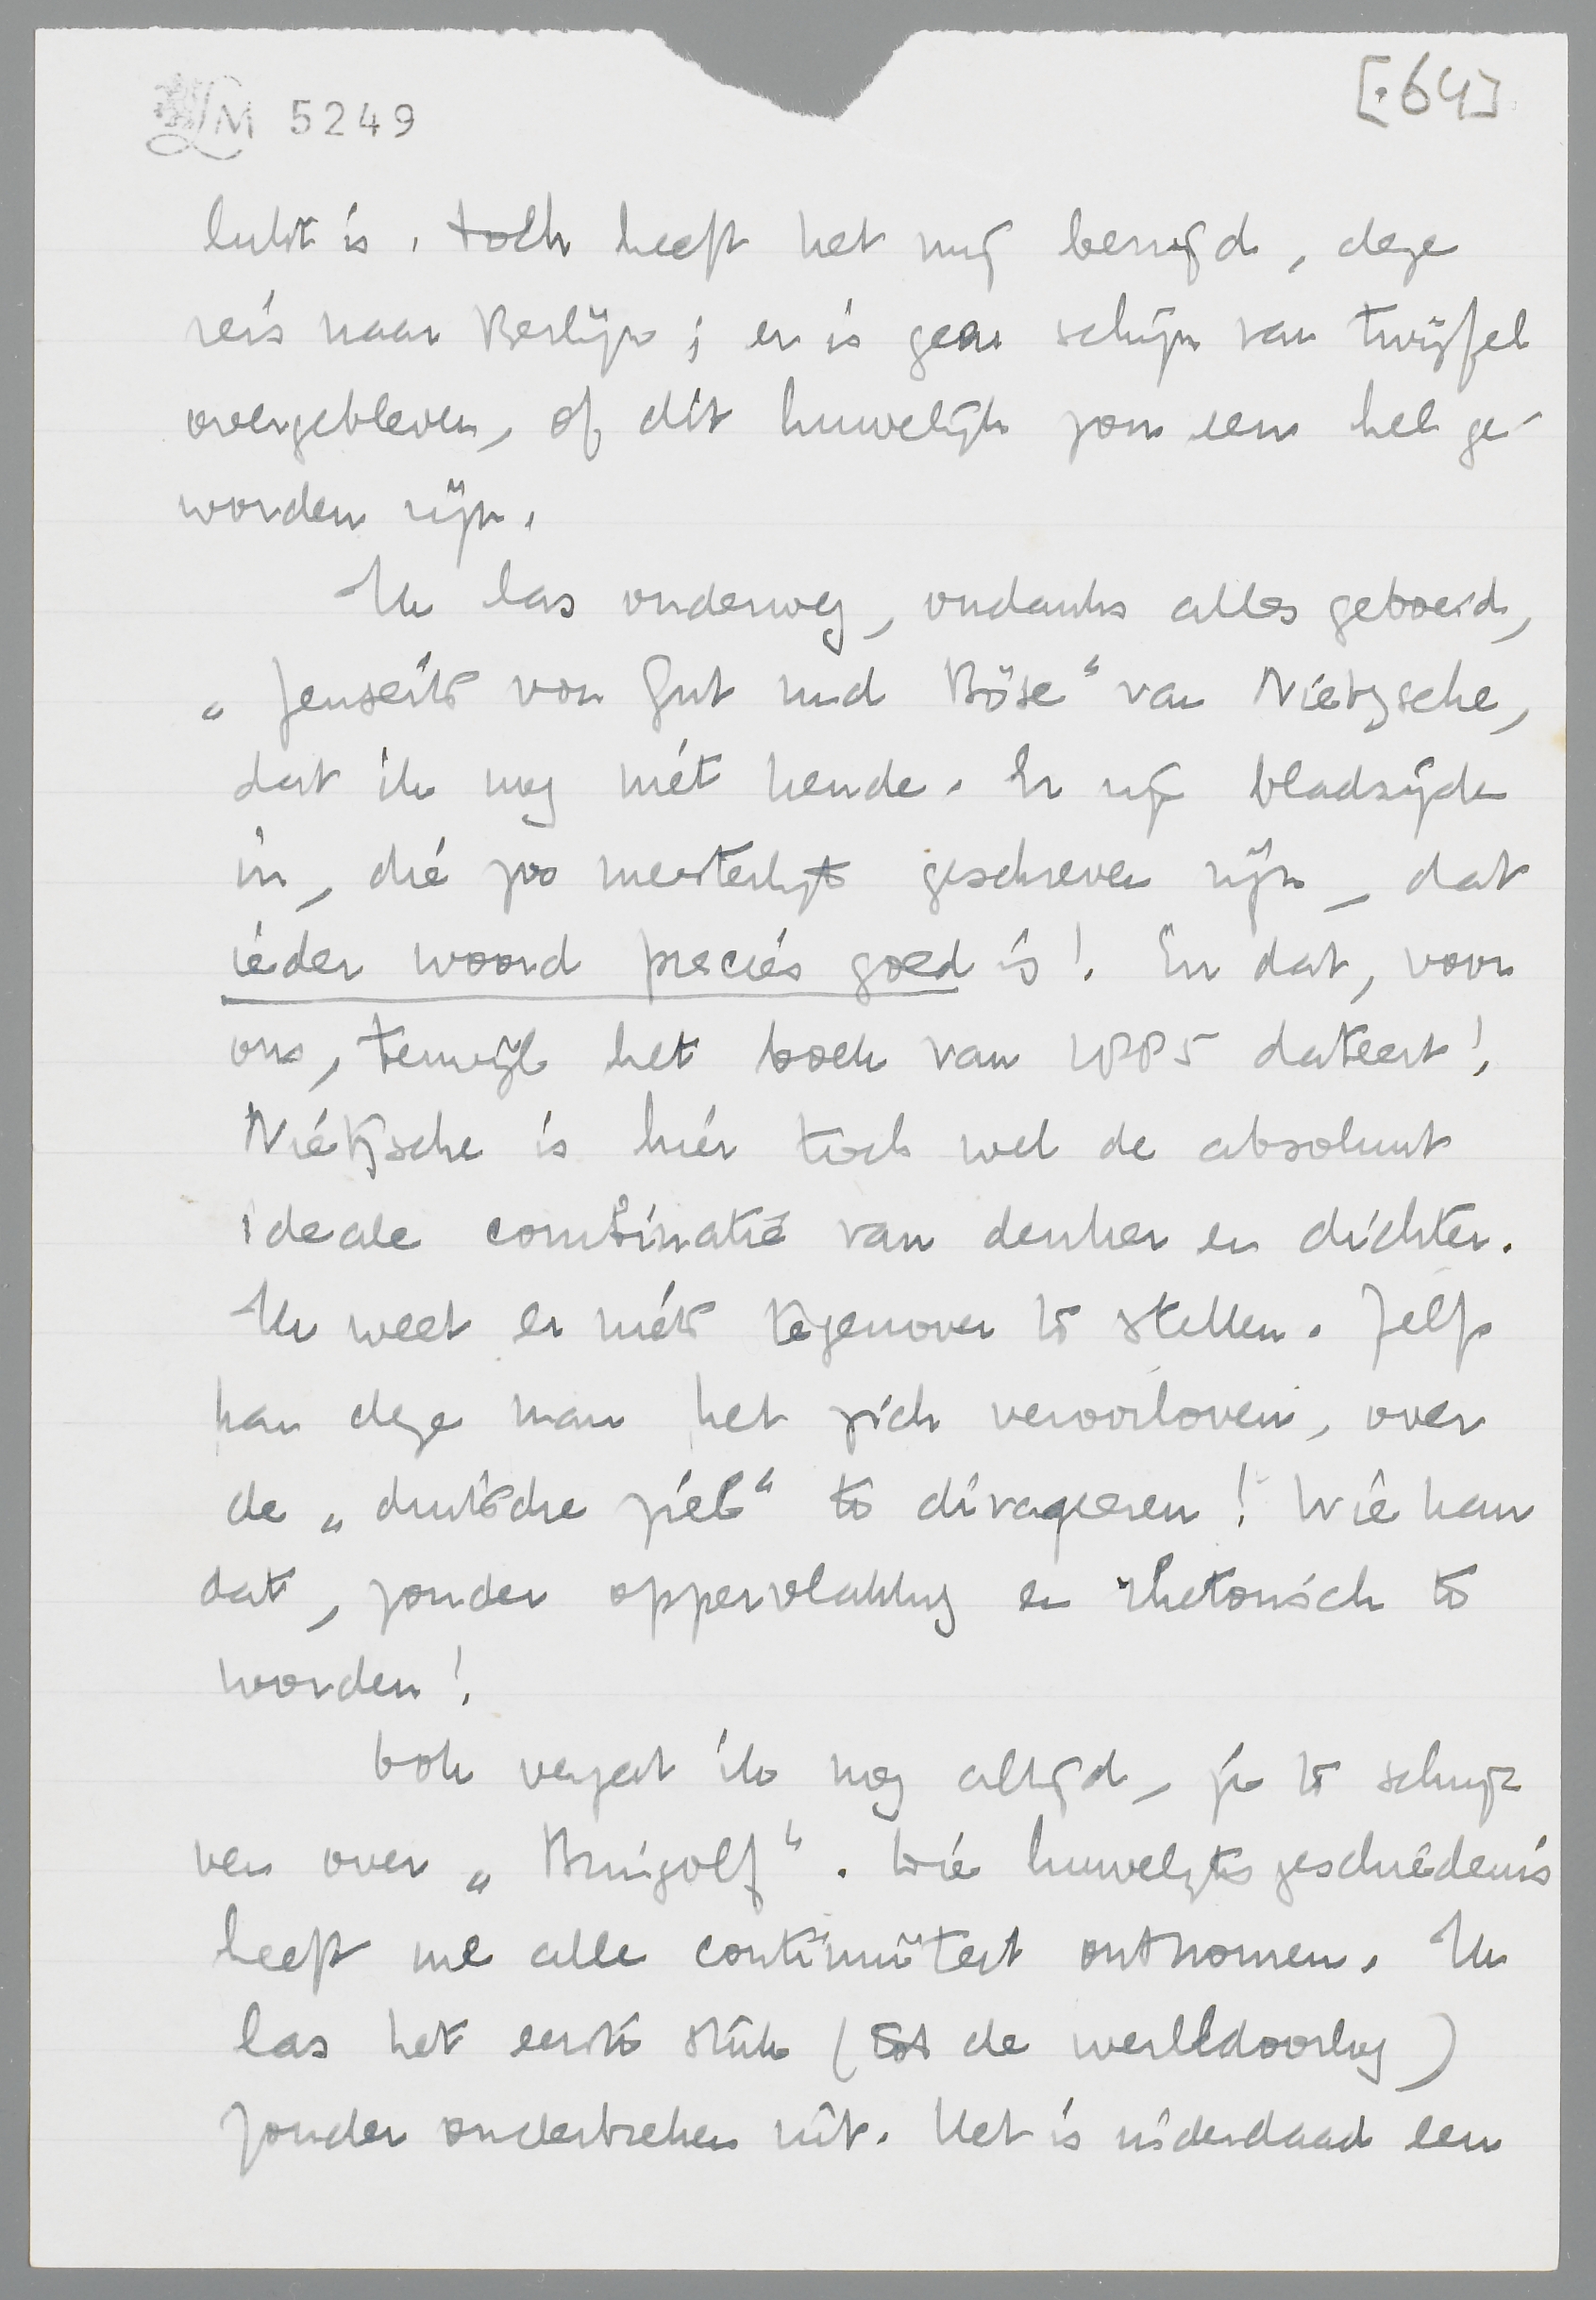 LM 5249
[64]
lukt is. Toch heeft het mij bevrijd, deze
reis naar Berlijn; er is geen schijn van twijfel
overgebleven, of dit huwelijk zou een hel ge-
worden zijn.
Ik las onderweg, ondanks alles geboeid,
„Jenseits von Gut und Böse" van Nietzsche,
dat ik nog niet kende. Er zijn bladzijden
in, die zoo meesterlijk geschreven zijn, dat
ieder woord precies goed is! En dat, voor
ons, terwijl het boek van 1885 dateert!
Nietzsche is hier toch wel de absoluut
ideale combinatie van denker en dichter.
Ik weet er niets tegenover te stellen. Zelfs
kan deze man het zich veroorloven, over
de „duitsche ziel" te divageeren! Wie kan
dat, zonder oppervlakkig en rhetorisch te
worden!
Ook vergat ik nog altijd, je te schrij-
ven over „Bringolf". Die huwelijksgeschiedenis
heeft me alle continuïteit ontnomen. Ik
las het eerste stuk (tot de wereldoorlog)
zonder onderbreken uit. Het is inderdaad een